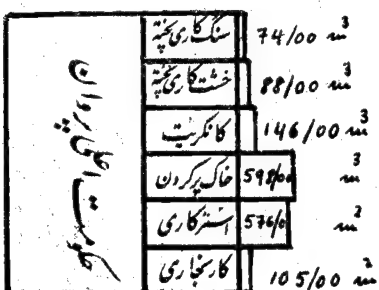 حکومت اعلی پروان
سنگ کاری پخته 74/00 m³
خشت کاری پخته 88/00 m³
کانکریت 146/00 m³
خاک پرکردن 598/00 m³
استرکاری 576/0 m²
کارنجاری 105/00 m²